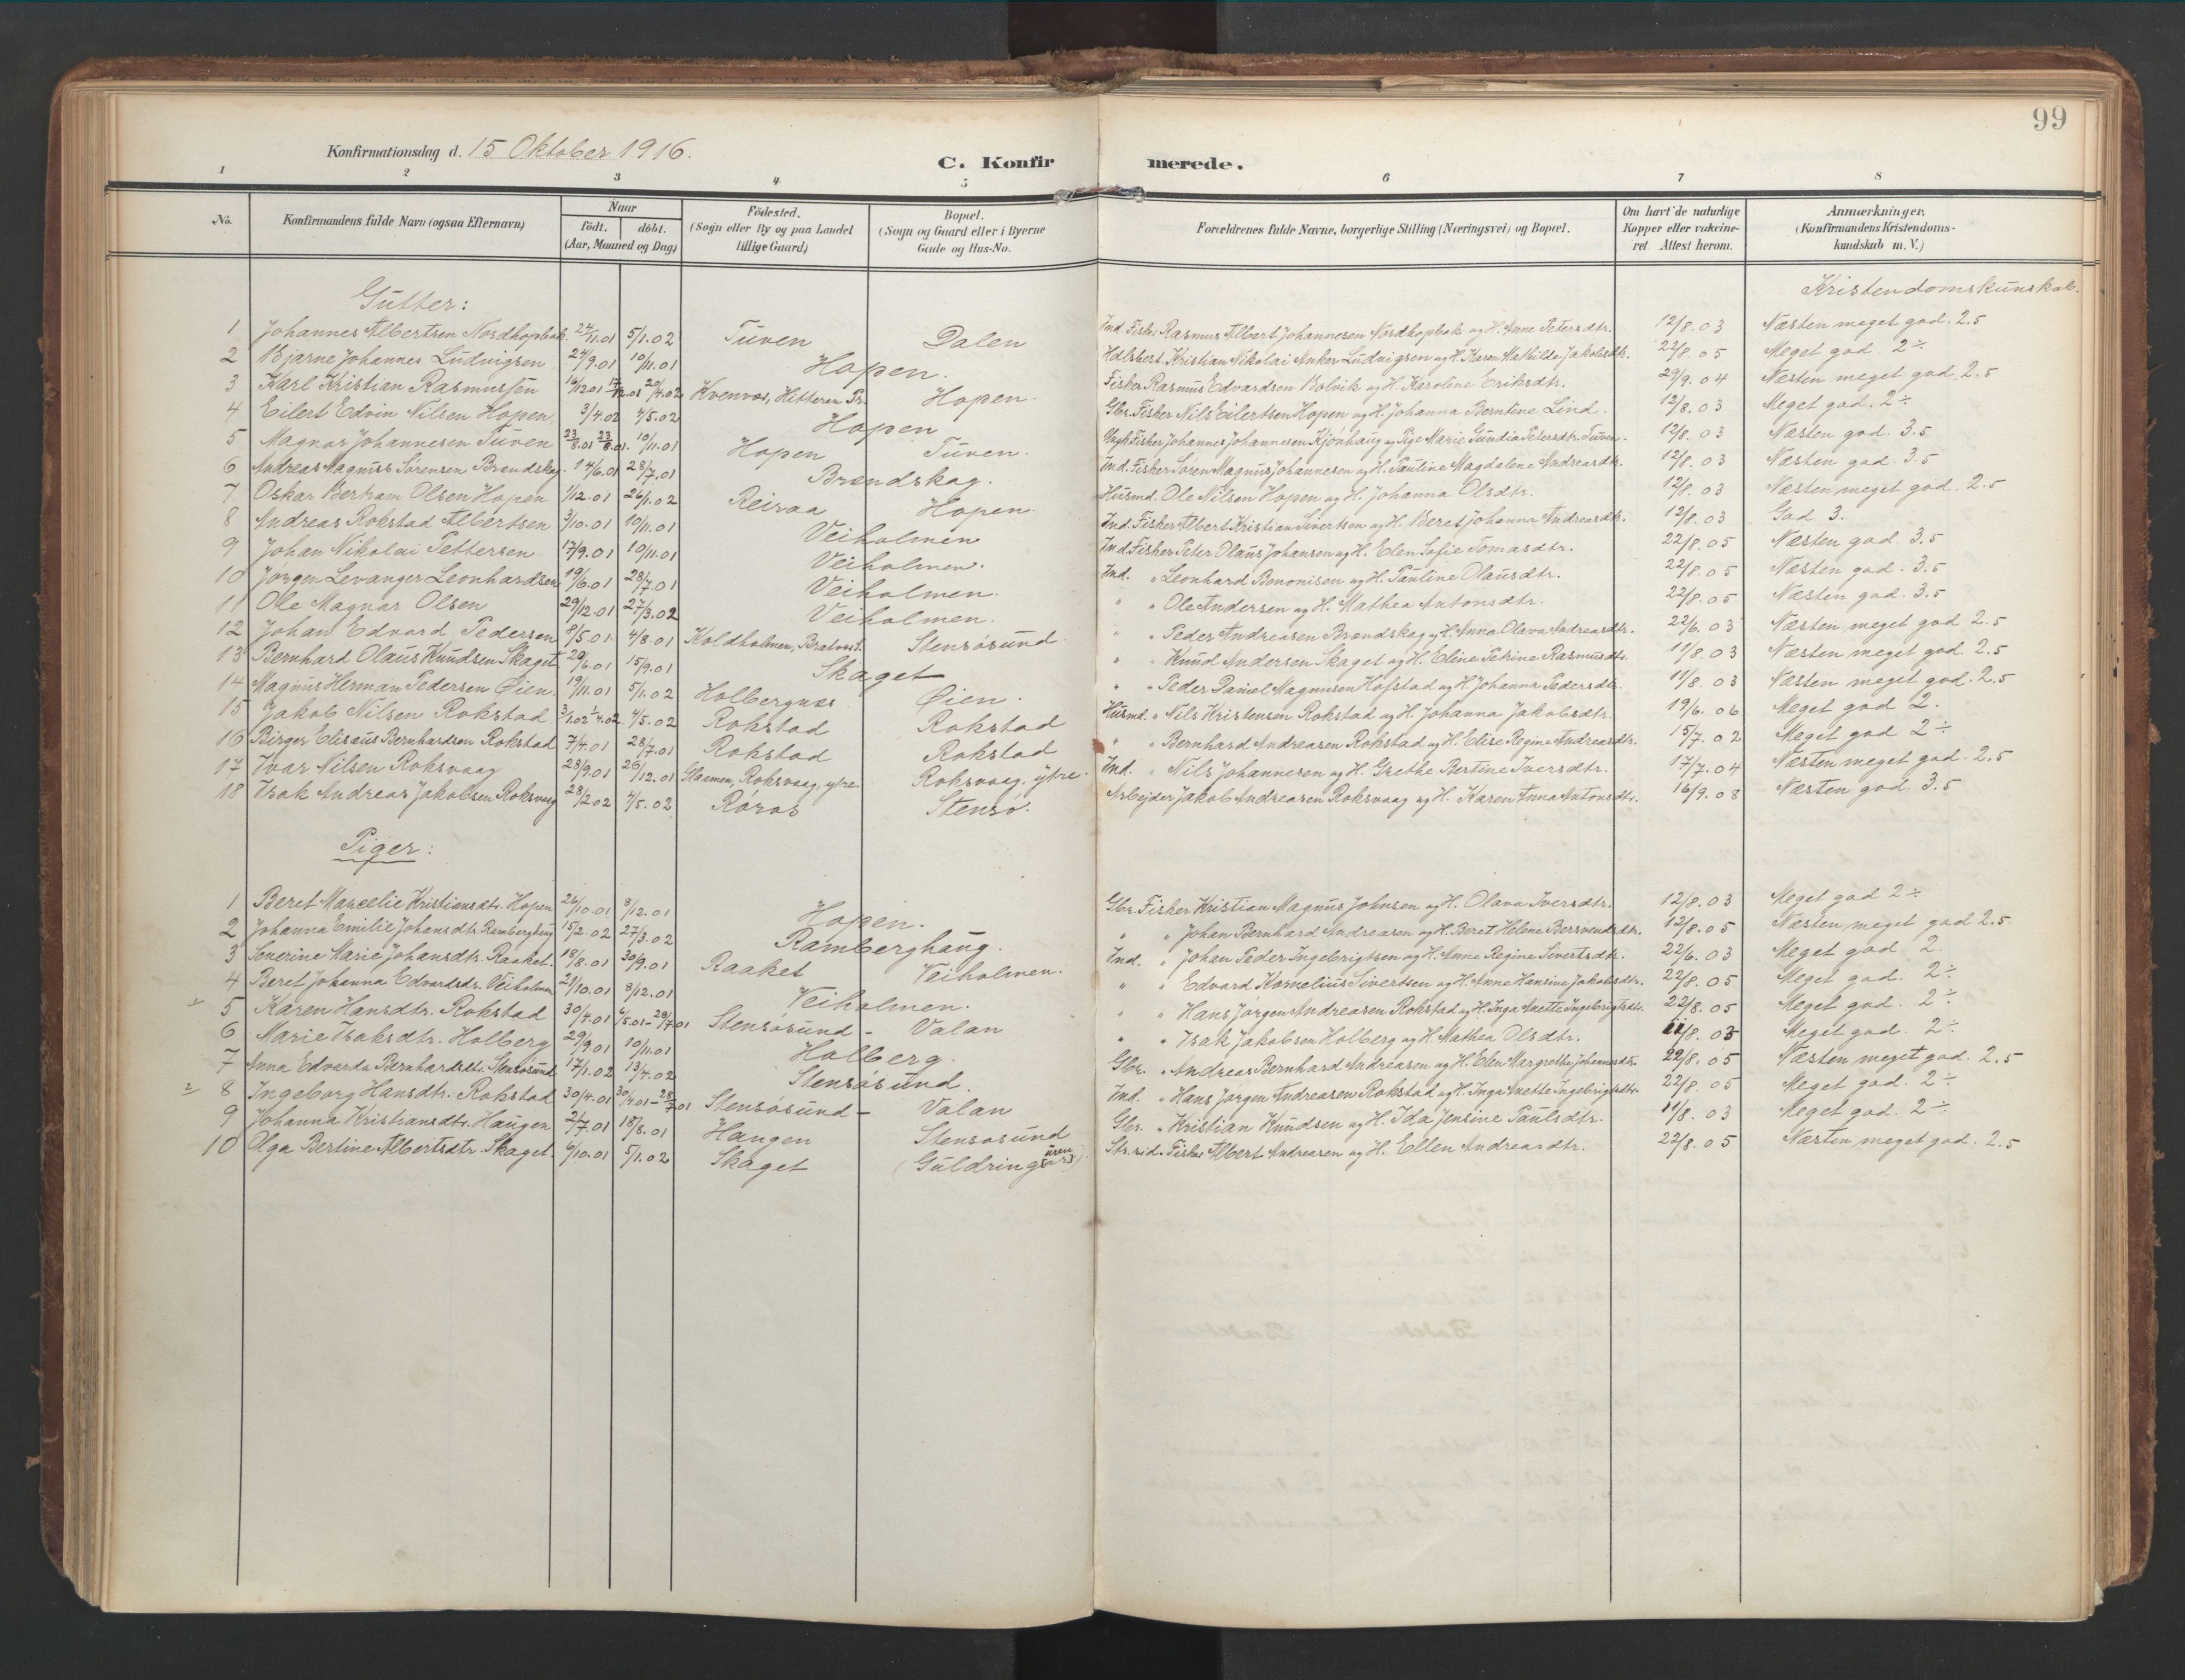 99
Konfirmationsdag d. 15 Oktober 1916.
C. Konfirmerede.
1 2 3 4 5 6 7 8
No. Konfirmandens fulde Navn (ogsaa Efternavn) Naar født. døbt. (Aar, Maaned og Dag) Födested. (Sogn eller By og paa Landet tillige Gaard) Bopæl. (Sogn og Gaard eller i Byerne Gade og Hus-No. Forældrenes fulde Navne, borgerlige Stilling (Næringsvei) og Bopæl. Om havt de naturlige Kopper eller vakcineret Attest herom. Anmærkninger. (Konfirmandens Kristendomskundskab m. V.)
Gutter: Kristendomskunskab.
1 Johannes Albertsen Nordhopbak 24/11.01 5/1.02 Tuven Dalen Ind. Fisk. Rasmus Albert Johannesen Nordhopbak og H. Anne Petersdtr. 12/8.03 Næsten meget god. 2.5
2 Bjarne Johannes Ludvigsen 24/9.01 10/11.01 Hopen. Hdlsbest. Kristian Nikolai Anker Ludvigsen og H. Karen Mathilde Jakobsdtr. 22/8.05 Meget god 2÷
3 Karl Kristian Rasmussen 16/12.01 17/12.01 20/4.02 Kvenvær, Hitteren Pr. Hopen. Fisker Rasmus Edvardsen Bolvik og H. Karoline Eriksdtr. 29/9.04 Næsten meget god 2.5
4 Eilert Edvin Nilsen Hopen 3/4.02 4/5.02 Hopen Gbr. Fisker Nils Eilertsen Hopen og H. Johanna Berntine Lind. 12/8.03 Meget god. 2÷
5 Magnar Johannesen Tuven 23/8.01 23/8.01. 10/11.01 Hopen Tuven. Ungk. Fisker Johannes Johannesen Kjönhaug og Pige Marie Gundia Petersdtr. Tuven. 12/8.03 Næsten god. 3.5
6 Andreas Magnus Sörensen Brændskag. 14/6.01 28/7.01 Brændskag. Ind. Fisker Sören Magnus Johannesen og H. Pauline Magdalene Andreasdtr. 12/8.03 Næsten god. 3.5
7 Oskar Bertram Olsen Hopen 1/12.01 26/1.02 Reiraa Hopen Husmd. Ole Nilsen Hopen og H. Johanna Olsdtr. 12/8.03 Næsten meget god. 2.5
8 Andreas Rokstad Albertsen 3/10.01 10/11.01 Veiholmen Ind. Fisker Albert Kristian Sivertsen og H. Beret Johanna Andreasdtr. 12/8.03 God 3.
9 Johan Nikolai Pettersen 17/9.01 10/11.01 Veiholmen. Ind. Fisker Peter Olaus Johansen og H. Elen Sofie Tomasdtr. 22/8.05 Næsten god. 3.5
10 Jörgen Levanger Leonhardsen 19/6.01 28/7.01 Veiholmen. Ind. " Leonhard Benonisen og H. Pauline Olausdtr. 22/8.05 Næsten god. 3.5
11 Ole Magnar Olsen 29/12.01 27/3.02 Veiholmen. " " Ole Andersen og H. Mathea Antonsdtr. 22/8.05 Næsten god. 3.5
12 Johan Edvard Pedersen 8/5.01 4/8.01 Koldholmen, Bratvær S. Stensösund " " Peder Andreasen Brændskag og H. Anna Olava Andreasdtr. 22/6.03 Næsten meget god 2.5
13 Bernhard Olaus Knudsen Skaget 20/6.01 15/9.01 Skaget " " Knud Andersen Skaget og H. Eline Petrine Rasmusdtr. 11/8.03 Næsten meget god 2.5
14 Magnus Herman Pedersen Øien. 19/11.01 5/1.02 Holbergnæs Øien. " " Peder Daniel Magnusen Hofstad og H. Johanna Pedersdtr. 11/8.03 Næsten meget god. 2.5
15 Jakob Nilsen Rokstad 3/1.02 1/4.02 4/5.02 Rokstad Rokstad Husmd. " Nils Kristensen Rokstad og H. Johanna Jakobsdtr. 19/6.06 Meget god 2.
16 Birger Elisæus Bernhardsen Rokstad 7/4.01 28/7.01 Rokstad Rokstad " " Bernhard Andreasen Rokstad og H. Elise Regine Andreasdtr. 15/7.02 Meget god 2÷
17 Ivar Nilsen Roksvaag 28/9.01 26/12.01 Glasmen, Roksvaag, ytre Roksvaag, ytre. Ind. " Nils Johannesen og H. Grethe Bertine Iversdtr. 17/7.04 Næsten meget god. 2.5
18 Isak Andreas Jakobsen Roksvaag 28/2.02 4/5.02 Röros Stensö. Arbejder Jakob Andreasen Roksvaag og H. Karen Anna Antonsdtr. 16/9.08 Næsten god 3.5
Piger:
1 Beret Marcelie Kristiansdtr. Hopen 26/10.01 8/12.01 Hopen. Gbr. Fisker Kristian Magnus Johnsen og H. Olava Iversdtr. 12/8.03 Meget god 2÷
2 Johanna Emilie Johansdtr. Ramberghaug 15/2.02 27/3.02 Ramberghaug. " " Johan Bernhard Andreasen og H. Beret Helene Bersvendsdtr. 12/8.05 Næsten meget god 2.5
3 Severine Marie Johansdtr. Raaket. 18/8.01 30/9.01 Raaket Veiholmen. Ind. " Johan Peder Ingebrigtsen og H. Anne Regine Sivertsdtr. 22/6.03 Meget god 2.
4 Beret Johanna Edvardsdtr. Veiholmen 21/10.01 8/12.01 Veiholmen. " " Edvard Kornelius Sivertsen og H. Anne Hansine Jakobsdtr. 22/8.05 Meget god. 2÷
5 Karen Hansdtr. Rokstad 30/4.01 6/5.01 - 28/7.01 Stensösund - Valan " " Hans Jörgen Andreasen Rokstad og H. Inga Anette Ingebrigtsdtr. 22/8.05 Meget god. 2÷
6 Marie Isaksdtr. Holberg 29/9.01 10/11.01 Holberg. " " Isak Jakobsen Holberg og H. Mathea Olsdtr. 11/8.03 Meget god. 2÷
7 Anna Edvarda Bernhardsdtr. Stensösund 17/1.02 13/4.02 Stensösund. Gbr. " Andreas Bernhard Andreasen og H. Elen Margrethe Johannesdtr. 22/8.05 Næsten meget god. 2.5
8 Ingeborg Hansdtr. Rokstad 30/4.01 30/4.01 - 28/7.01 Stensösund - Valan Ind. " Hans Jörgen Andreasen Rokstad og H. Inga Anette Ingebrigtsdtr. 22/8.05 Meget god. 2÷
9 Johanna Kristiansdtr. Haugen 2/7.01 18/8.01 Haugen Stensosund Gbr. " Kristian Knudsen og H. Ida Jensine Paulsdtr. 11/8.03 Meget god. 2÷
10 Olga Bertine Albertsdtr. Skaget. 6/10.01 5/1.02 Skaget (Guldring Str.sid. Fisker Albert Andreasen og H. Ellen Andreasdtr. 22/8.05 Næsten meget god. 2.5